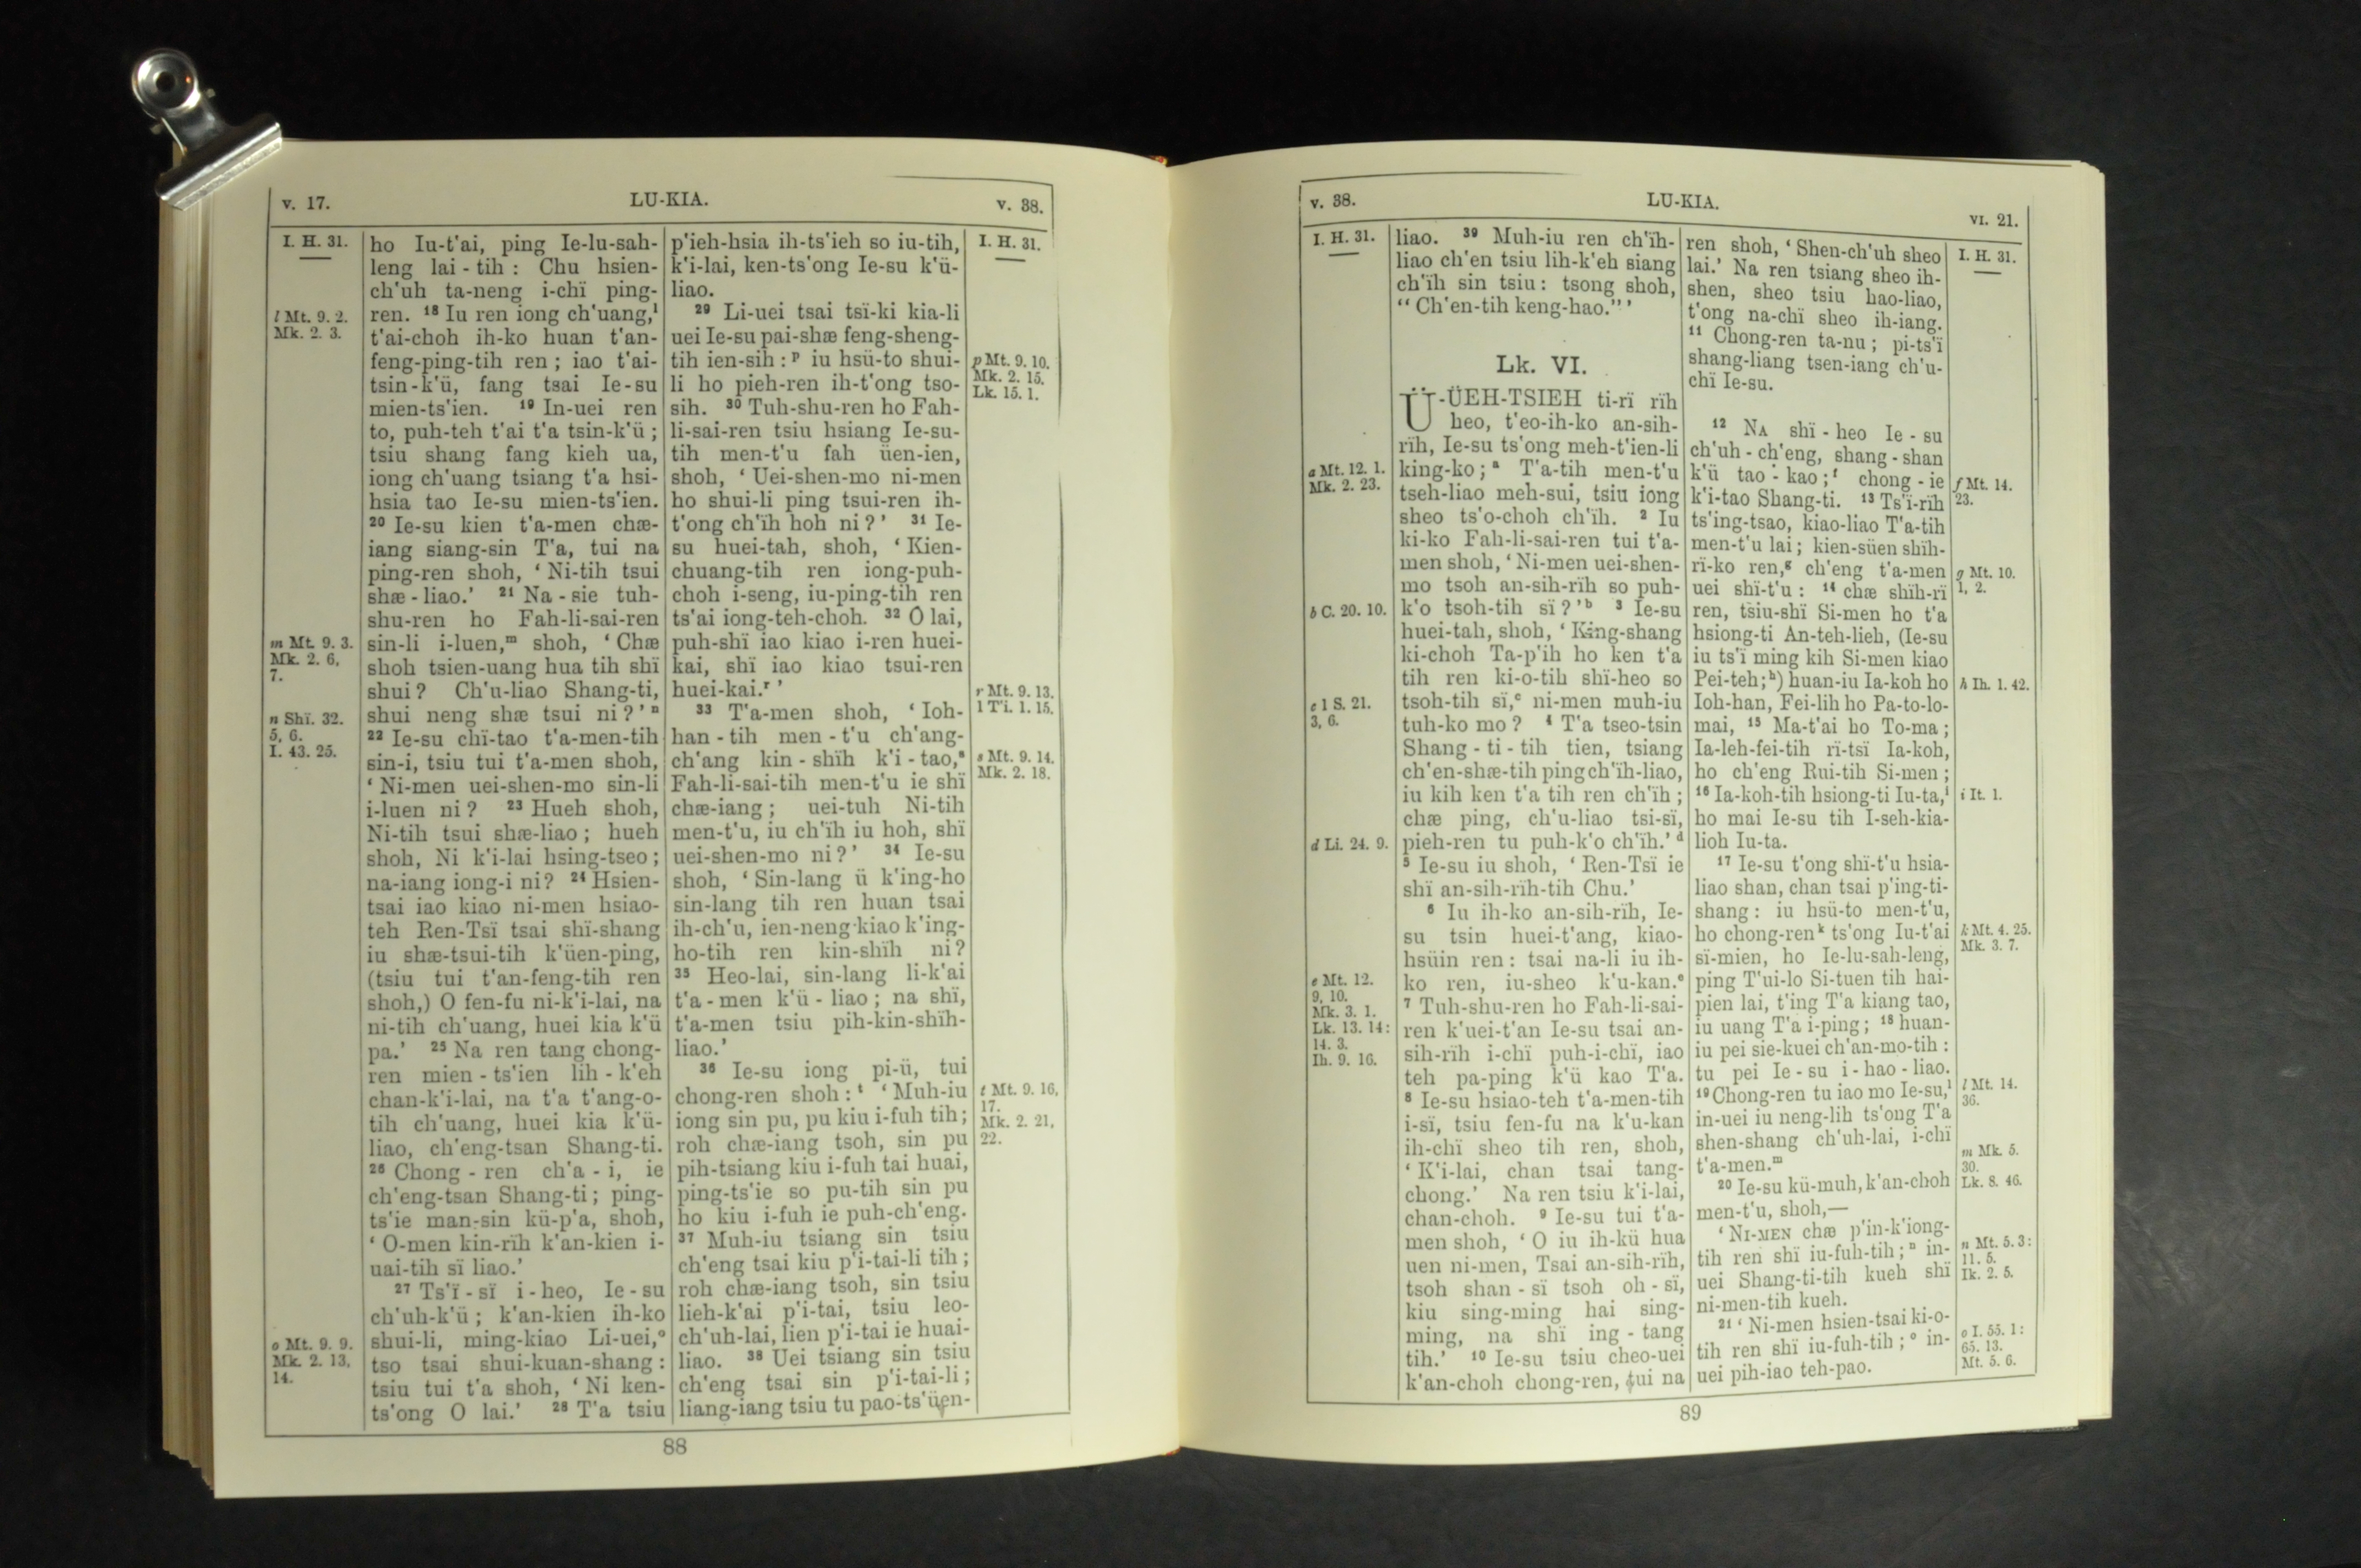 v. 17.
LU-KIA.
v. 38.
I. H. 31.
l Mt. 9. 2.
Mk. 2. 3.
m Mt. 9. 3.
Mk. 2. 6,
7.
n Shï. 32.
5, 6.
I. 43. 25.
o Mt. 9. 9.
Mk. 2. 13,
14.
ho Iu-t'ai, ping Ie-lu-sah-
leng lai-tih : Chu hsien-
ch'uh ta-neng i-chï ping-
ren. 18 Iu ren iong ch'uang,l
t'ai-choh ih-ko huan t'an-
feng-ping-tih ren ; iao t'ai-
tsin-k'ü, fang tsai Ie-su
mien-ts'ien. 19 In-uei ren
to, puh-teh t'ai t'a tsin-k'ü ;
tsiu shang fang kieh ua,
iong ch'uang tsiang t'a hsi-
hsia tao Ie-su mien-ts'ien.
20 Ie-su kien t'a-men chæ-
iang siang-sin T'a, tui na
ping-ren shoh, ‘ Ni-tih tsui
shæ-liao.’ 21 Na-sie tuh-
shu-ren ho Fah-li-sai-ren
sin-li i-luen,m shoh, ‘ Chæ
shoh tsien-uang hua tih shï
shui ? Ch'u-liao Shang-ti,
shui neng shæ tsui ni ? ’ n
22 Ie-su chï-tao t'a-men-tih
sin-i, tsiu tui t'a-men shoh,
‘ Ni-men uei-shen-mo sin-li
i-luen ni ? 23 Hueh shoh,
Ni-tih tsui shæ-liao ; hueh
shoh, Ni k'i-lai hsing-tseo ;
na-iang iong-i ni ? 24 Hsien-
tsai iao kiao ni-men hsiao-
teh Ren-Tsï tsai shï-shang
iu shæ-tsui-tih k'üen-ping,
(tsiu tui t'an-feng-tih ren
shoh,) O fen-fu ni-k'i-lai, na
ni-tih ch'uang, huei kia k'ü
pa.’ 25 Na ren tang chong-
ren mien-ts'ien lih-k'eh
chan-k'i-lai, na t'a t'ang-o-
tih ch'uang, huei kia k'ü-
liao, ch'eng-tsan Shang-ti.
26 Chong-ren ch'a-i, ie
ch'eng-tsan Shang-ti ; ping-
ts'ie man-sin kü-p'a, shoh,
‘ O-men kin-rïh k'an-kien i-
uai-tih sï liao.’
27 Ts'ï-sï i-heo, Ie-su
ch'uh-k'ü ; k'an-kien ih-ko
shui-li, ming-kiao Li-uei,o
tso tsai shui-kuan-shang :
tsiu tui t'a shoh, ‘ Ni ken-
ts'ong O lai.’ 28 T'a tsiu
p'ieh-hsia ih-ts'ieh so iu-tih,
k'i-lai, ken-ts'ong Ie-su k'ü-
liao.
29 Li-uei tsai tsï-ki kia-li
uei Ie-su pai-shæ feng-sheng-
tih ien-sih : p iu hsü-to shui-
li ho pieh-ren ih-t'ong tso-
sih. 30 Tuh-shu-ren ho Fah-
li-sai-ren tsiu hsiang Ie-su-
tih men-t'u fah üen-ien,
shoh, ‘ Uei-shen-mo ni-men
ho shui-li ping tsui-ren ih-
t'ong ch'ïh hoh ni ? ’ 31 Ie-
su huei-tah, shoh, ‘ Kien-
chuang-tih ren iong-puh-
choh i-seng, iu-ping-tih ren
ts'ai iong-teh-choh. 32 O lai,
puh-shï iao kiao i-ren huei-
kai, shï iao kiao tsui-ren
huei-kai.r ’
33 T'a-men shoh, ‘ Ioh-
han-tih men-t'u ch'ang-
ch'ang kin-shïh k'i-tao,s
Fah-li-sai-tih men-t'u ie shï
chæ-iang ; uei-tuh Ni-tih
men-t'u, iu ch'ïh iu hoh, shï
uei-shen-mo ni ? ’ 34 Ie-su
shoh, ‘ Sin-lang ü k'ing-ho
sin-lang tih ren huan tsai
ih-ch'u, ien-neng kiao k'ing-
ho-tih ren kin-shïh ni ?
35 Heo-lai, sin-lang li-k'ai
t'a-men k'ü-liao ; na shï,
t'a-men tsiu pih-kin-shïh-
liao.’
36 Ie-su iong pi-ü, tui
chong-ren shoh : t ‘ Muh-iu
iong sin pu, pu kiu i-fuh tih ;
roh chæ-iang tsoh, sin pu
pih-tsiang kiu i-fuh tai huai,
ping-ts'ie so pu-tih sin pu
ho kiu i-fuh ie puh-ch'eng.
37 Muh-iu tsiang sin tsiu
ch'eng tsai kiu p'i-tai-li tih ;
roh chæ-iang tsoh, sin tsiu
lieh-k'ai p'i-tai, tsiu leo-
ch'uh-lai, lien p'i-tai ie huai-
liao. 38 Uei tsiang sin tsiu
ch'eng tsai sin p'i-tai-li ;
liang-iang tsiu tu pao-ts'üen-
I. H. 31.
p Mt. 9. 10.
Mk. 2. 15.
Lk. 15. 1.
r Mt. 9. 13.
1 T'i. 1. 15.
s Mt. 9. 14.
Mk. 2. 18.
t Mt. 9. 16,
17.
Mk. 2. 21,
22.
88
v. 38.
LU-KIA.
VI. 21.
I. H. 31.
a Mt. 12. 1.
Mk. 2. 23.
b C. 20. 10.
c 1 S. 21.
3, 6.
d Li. 24. 9.
e Mt. 12.
9, 10.
Mk. 3. 1.
Lk. 13. 14 :
14. 3.
Ih. 9. 16.
liao. 39 Muh-iu ren ch'ïh-
liao ch'en tsiu lih-k'eh siang
ch'ïh sin tsiu : tsong shoh,
“ Ch'en-tih keng-hao.” ’
Lk. VI.
Ü-ÜEH-TSIEH ti-rï rïh
heo, t'eo-ih-ko an-sih-
rïh, Ie-su ts'ong meh-t'ien-li
king-ko ; a T'a-tih men-t'u
tseh-liao meh-sui, tsiu iong
sheo ts'o-choh ch'ïh. 2 Iu
ki-ko Fah-li-sai-ren tui t'a-
men shoh, ‘ Ni-men uei-shen-
mo tsoh an-sih-rïh so puh-
k'o tsoh-tih sï ? ’ b 3 Ie-su
huei-tah, shoh, ‘ King-shang
ki-choh Ta-p'ih ho ken t'a
tih ren ki-o-tih shï-heo so
tsoh-tih sï,c ni-men muh-iu
tuh-ko mo ? 4 T'a tseo-tsin
Shang-ti-tih tien, tsiang
ch'en-shæ-tih ping ch'ïh-liao,
iu kih ken t'a tih ren ch'ïh ;
chæ ping, ch'u-liao tsi-sï,
pieh-ren tu puh-k'o ch'ïh.’ d
5 Ie-su iu shoh, ‘ Ren-Tsï ie
shï an-sih-rïh-tih Chu.’
6 Iu ih-ko an-sih-rïh, Ie-
su tsin huei-t'ang, kiao-
hsüin ren : tsai na-li iu ih-
ko ren, iu-sheo k'u-kan.e
7 Tuh-shu-ren ho Fah-li-sai-
ren k'uei-t'an Ie-su tsai an-
sih-rïh i-chï puh-i-chï, iao
teh pa-ping k'ü kao T'a.
8 Ie-su hsiao-teh t'a-men-tih
i-sï, tsiu fen-fu na k'u-kan
ih-chï sheo tih ren, shoh,
‘ K'i-lai, chan tsai tang-
chong.’ Na ren tsiu k'i-lai,
chan-choh. 9 Ie-su tui t'a-
men shoh, ‘ O iu ih-kü hua
uen ni-men, Tsai an-sih-rïh,
tsoh shan-sï tsoh oh-sï,
kiu sing-ming hai sing-
ming, na shï ing-tang
tih.’ 10 Ie-su tsiu cheo-uei
k'an-choh chong-ren, tui na
ren shoh, ‘ Shen-ch'uh sheo
lai.’ Na ren tsiang sheo ih-
shen, sheo tsiu hao-liao,
t'ong na-chï sheo ih-iang.
11 Chong-ren ta-nu ; pi-ts'ï
shang-liang tsen-iang ch'u-
chï Ie-su.
12 NA shï-heo Ie-su
ch'uh-ch'eng, shang-shan
k'ü tao-kao ; f chong-ie
k'i-tao Shang-ti. 13 Ts'ï-rïh
ts'ing-tsao, kiao-liao T'a-tih
men-t'u lai ; kien-süen shïh-
rï-ko ren,g ch'eng t'a-men
uei shï-t'u : 14 chæ shïh-rï
ren, tsiu-shï Si-men ho t'a
hsiong-ti An-teh-lieh, (Ie-su
iu ts'ï ming kih Si-men kiao
Pei-teh ; h) huan-iu Ia-koh ho
Ioh-han, Fei-lih ho Pa-to-lo-
mai, 15 Ma-t'ai ho To-ma ;
Ia-leh-fei-tih rï-tsï Ia-koh,
ho ch'eng Rui-tih Si-men ;
16 Ia-koh-tih hsiong-ti Iu-ta,i
ho mai Ie-su tih I-seh-kia-
lioh Iu-ta.
17 Ie-su t'ong shï-t'u hsia-
liao shan, chan tsai p'ing-ti-
shang : iu hsü-to men-t'u,
ho chong-ren k ts'ong Iu-t'ai
sï-mien, ho Ie-lu-sah-leng,
ping T'ui-lo Si-tuen tih hai-
pien lai, t'ing T'a kiang tao,
iu uang T'a i-ping ; 18 huan-
iu pei sie-kuei ch'an-mo-tih :
tu pei Ie-su i-hao-liao.
19 Chong-ren tu iao mo Ie-su,l
in-uei iu neng-lih ts'ong T'a
shen-shang ch'uh-lai, i-chï
t'a-men.m
20 Ie-su kü-muh, k'an-choh
men-t'u, shoh,—
‘ NI-MEN chæ p'in-k'iong-
tih ren shï iu-fuh-tih ; n in-
uei Shang-ti-tih kueh shï
ni-men-tih kueh.
21 ‘ Ni-men hsien-tsai ki-o-
tih ren shï iu-fuh-tih ; o in-
uei pih-iao teh-pao.
I. H. 31.
f Mt. 14.
23.
g Mt. 10.
1, 2.
h Ih. 1. 42.
i It. 1.
k Mt. 4. 25.
Mk. 3. 7.
l Mt. 14.
36.
m Mk. 5.
30.
Lk. 8. 46.
n Mt. 5. 3 :
11. 5.
Ik. 2. 5.
o I. 55. 1 :
65. 13.
Mt. 5. 6.
89